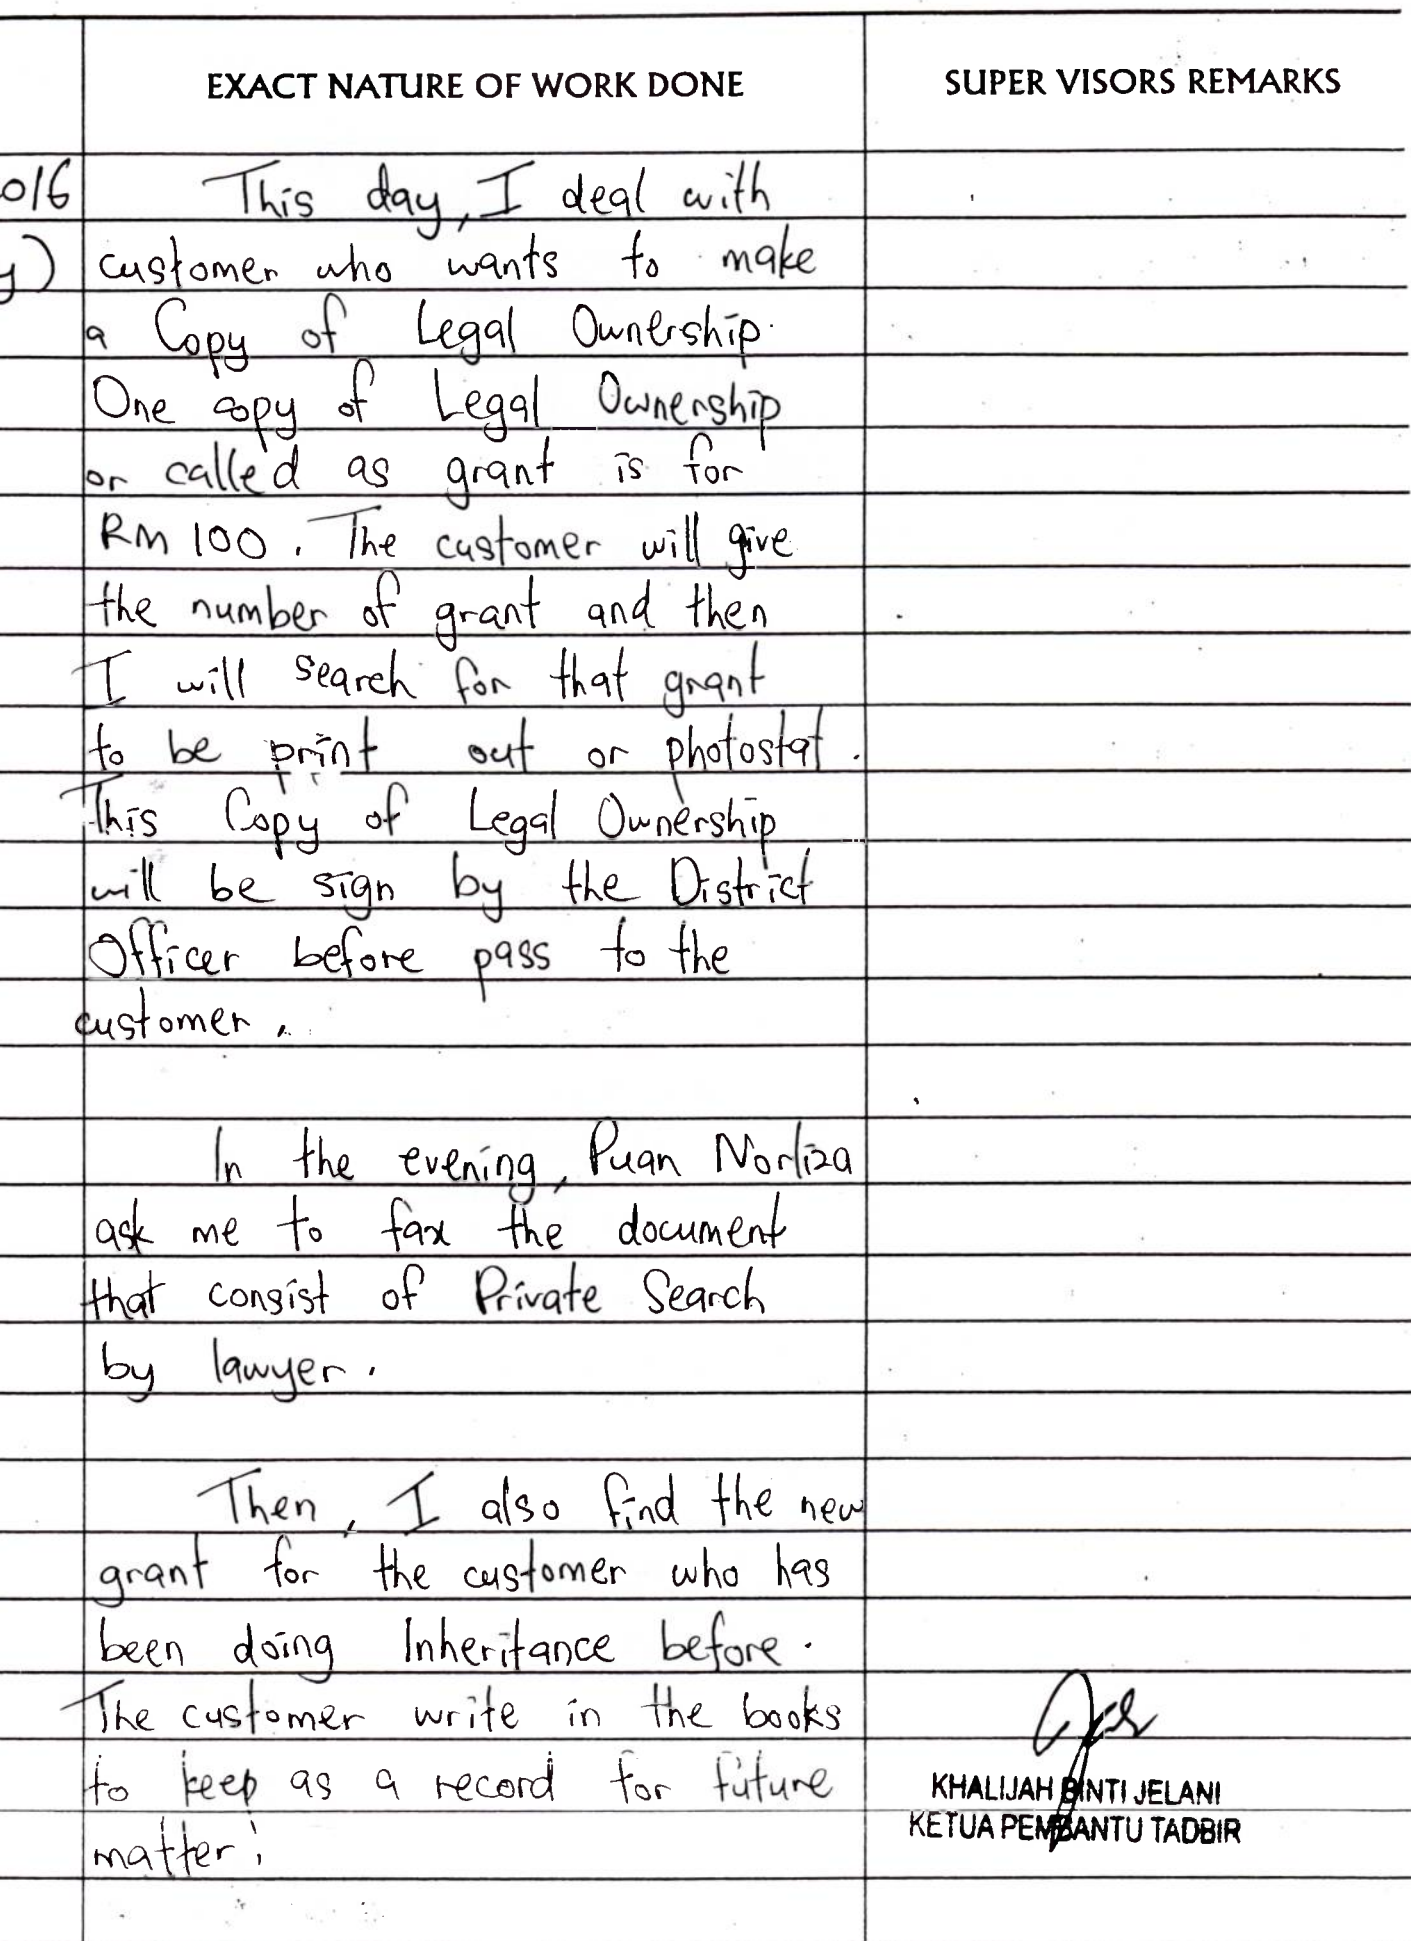 EXACT NATURE OF WORK DONE
SUPER VISORS REMARKS
016
y)
This day, I deal with
customer who wants to make
a Copy of Legal Ownership.
One copy of Legal Ownership
or called as grant is for
RM 100. The customer will give
the number of grant and then
I will search for that grant
to be print out or photostat.
This Copy of Legal Ownership
will be sign by the District
Officer before pass to the
customer.
In the evening, Puan Norliza
ask me to fax the document
that consist of Private Search
by lawyer.
Then, I also find the new
grant for the customer who has
been doing Inheritance before.
The customer write in the books
to keep as a record for future
matter.
KHALIJAH BINTI JELANI
KETUA PEMBANTU TADBIR